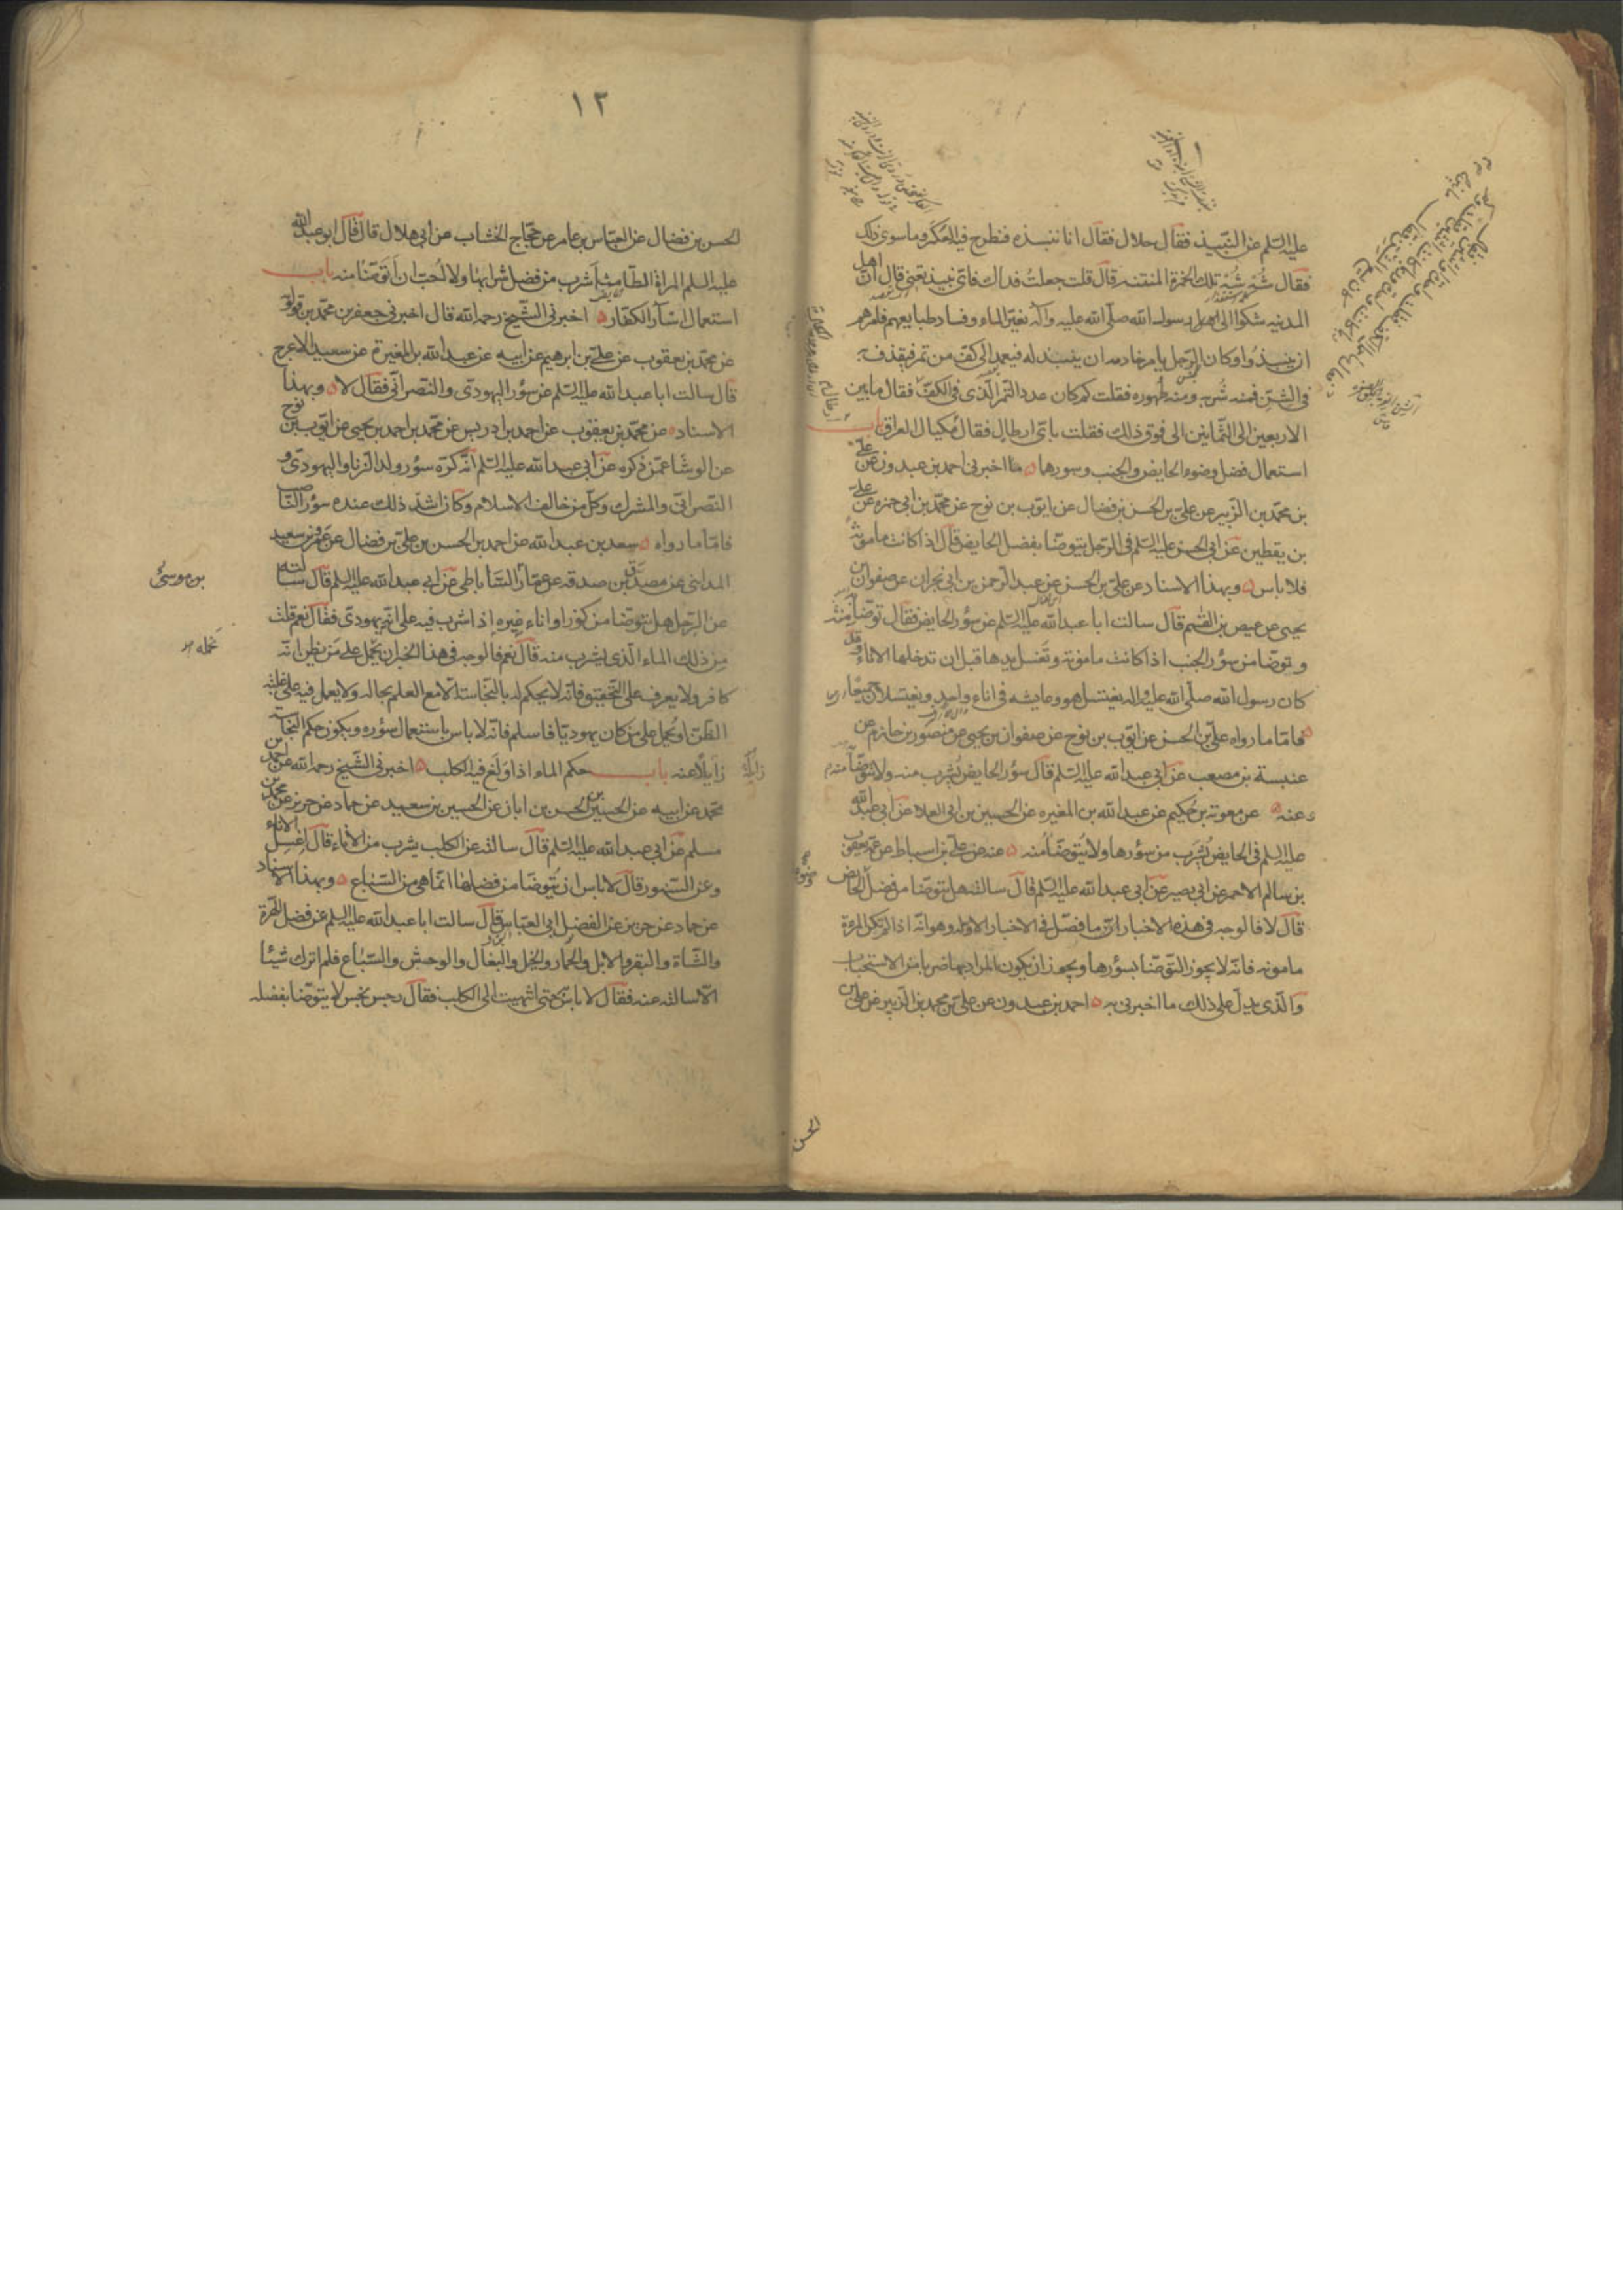 عليه السلم عن النبيذ فقال حلال فقال انا ننبذه فنطرح فيه العكر وما سوى ذلك
فقال شُه شُه تلك الخمرة المنتنه قال قلت جعلت فداك فاى نبيذ تعنى قال ان اهل
المدينه شكوا الى رسول الله صلى الله عليه وآله تغير الماء وفساد طبايعهم فامرهم
ان ينبذوا وكان الرجل يامر خادمه ان ينبذ له فيعمد الى كف من تمر فيقذف به
فى الشن فمنه شربه ومنه طهوره فقلت كم كان عدد التمر الذى فى الكف فقال ما بين
الاربعين الى الثمانين الى فوق ذلك فقلت باى ارطال فقال مكيال العراق باب
استعمال فضل وضوء الحايض والجنب وسورها ما اخبرنى احمد بن عبدون عن على
بن محمد بن الزبير عن على بن الحسن بن فضال عن ايوب بن نوح عن محمد بن ابى حمزه عن على
بن يقطين عن ابى الحسن عليه السلم فى الرجل يتوضا بفضل الحايض قال اذا كانت مامونة
فلا باس ۵ وبهذا الاسناد عن على بن الحسن عن عبد الرحمن بن ابى نجران عن صفوان بن
يحيى عن عيص بن القسم قال سالت ابا عبد الله عليه السلم عن سؤر الحايض فقال توضأ منه
وتوضا من سؤر الجنب اذا كانت مامونة وتغسل يدها قبل ان تدخلها الاناء وقد
كان رسول الله صلى الله عليه واله يغتسل هو وعايشه فى اناء واحد ويغتسلان جميعا
فاما ما رواه على بن الحسن عن ايوب بن نوح عن صفوان بن يحيى عن منصور بن حازم عن
عنبسة بن مصعب عن ابى عبد الله عليه السلم قال سؤر الحايض يُشرب منه ولا يتوضأ منه
وعنه ۵ عن معوية بن حكيم عن عبد الله بن المغيره عن الحسين بن ابى العلا عن ابى عبد الله
عليه السلم فى الحايض يُشرب من سؤرها ولا يُتوضأ منه ۵ عنه عن على بن اسباط عن عمه يعقوب
بن سالم الاحمر عن ابى بصير عن ابى عبد الله عليه السلم قال سالته هل يتوضا من فضل الحايض
قال لا فالوجه فى هذه الاخبار ما فصل فى الاخبار الاوله وهو انه اذا لم تكن المرءة
مامونه فانه لا يجوز التوضا بسؤرها ويجوز ان يكون المراد بها ضربا من الاستحباب
والذى يدل على ذلك ما اخبرنى به ۵ احمد بن عبدون عن على بن محمد بن الزبير عن على بن
الحسن
١٣
الحسن بن فضال عن العباس بن عامر عن حجاج الخشاب عن ابى هلال قال قال ابو عبد الله
عليه السلم المراة الطامث اشرب من فضل شرابها ولا احب ان اتوضا منه باب
استعمال اسآر الكفار ۵ اخبرنى الشيخ رحمه الله قال اخبرنى جعفر بن محمد بن قولويه
عن محمد بن يعقوب عن على بن ابرهيم عن ابيه عن عبد الله بن المغيرة عن سعيد الاعرج
قال سالت ابا عبد الله عليه السلم عن سؤر اليهودى والنصرانى فقال لا ۵ وبهذا
الاسناد عن محمد بن يعقوب عن احمد بن ادريس عن محمد بن احمد بن يحيى عن ايوب بن نوح
عن الوشا عمن ذكره عن ابى عبد الله عليه السلم انه كره سؤر ولد الزنا واليهودى و
النصرانى والمشرك وكل من خالف الاسلام وكان اشد ذلك عنده سؤر الناصب
فاما ما رواه ۵ سعد بن عبد الله عن احمد بن الحسن بن على بن فضال عن عمرو بن سعيد
المداينى عن مصدق بن صدقه عن عمار الساباطى عن ابى عبد الله عليه السلم قال سالته
بن موسى
عن الرجل هل يتوضا من كوز او اناء غيره اذا شرب فيه على انه يهودى فقال نعم قلت
من ذلك الماء الذى يشرب منه قال نعم فالوجه فى هذا الخبر ان يُحمل على من يظن انه
كافر ولا يعرف على التحقيق فانه لا يحكم له بالنجاسة الا مع العلم بحاله ولا يعمل فيه على غلبة
الظن او يُحمل على من كان يهوديا فاسلم فانه لا باس باستعمال سؤره ويكون حكم النجاسة
زايلا عنه باب حكم الماء اذا ولغ فيه الكلب ۵ اخبرنى الشيخ رحمه الله عن احمد بن
محمد عن ابيه عن الحسين بن الحسن بن ابان عن الحسين بن سعيد عن حماد عن حريز عن محمد بن
مسلم عن ابى عبد الله عليه السلم قال سالته عن الكلب يشرب من الاناء قال اغسل الاناء
وعن السنور قال لا باس ان يُتوضا من فضلها انما هى من السباع ۵ وبهذا الاسناد
عن حماد عن حريز عن الفضل ابى العباس قال سالت ابا عبد الله عليه السلم عن فضل الهرة
والشاة والبقر والابل والحمار والخيل والبغال والوحش والسباع فلم اترك شيئا
الا سالته عنه فقال لا باس حتى انتهيت الى الكلب فقال رجس نجس لا يتوضا بفضله